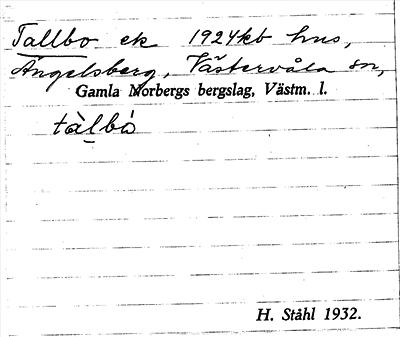 Tallbo ek 1924kb hus,
Ängelsberg, Västervåla sn,
Gamla Norbergs bergslag, Västm. l.
tàl̠bó
H. Ståhl 1932.